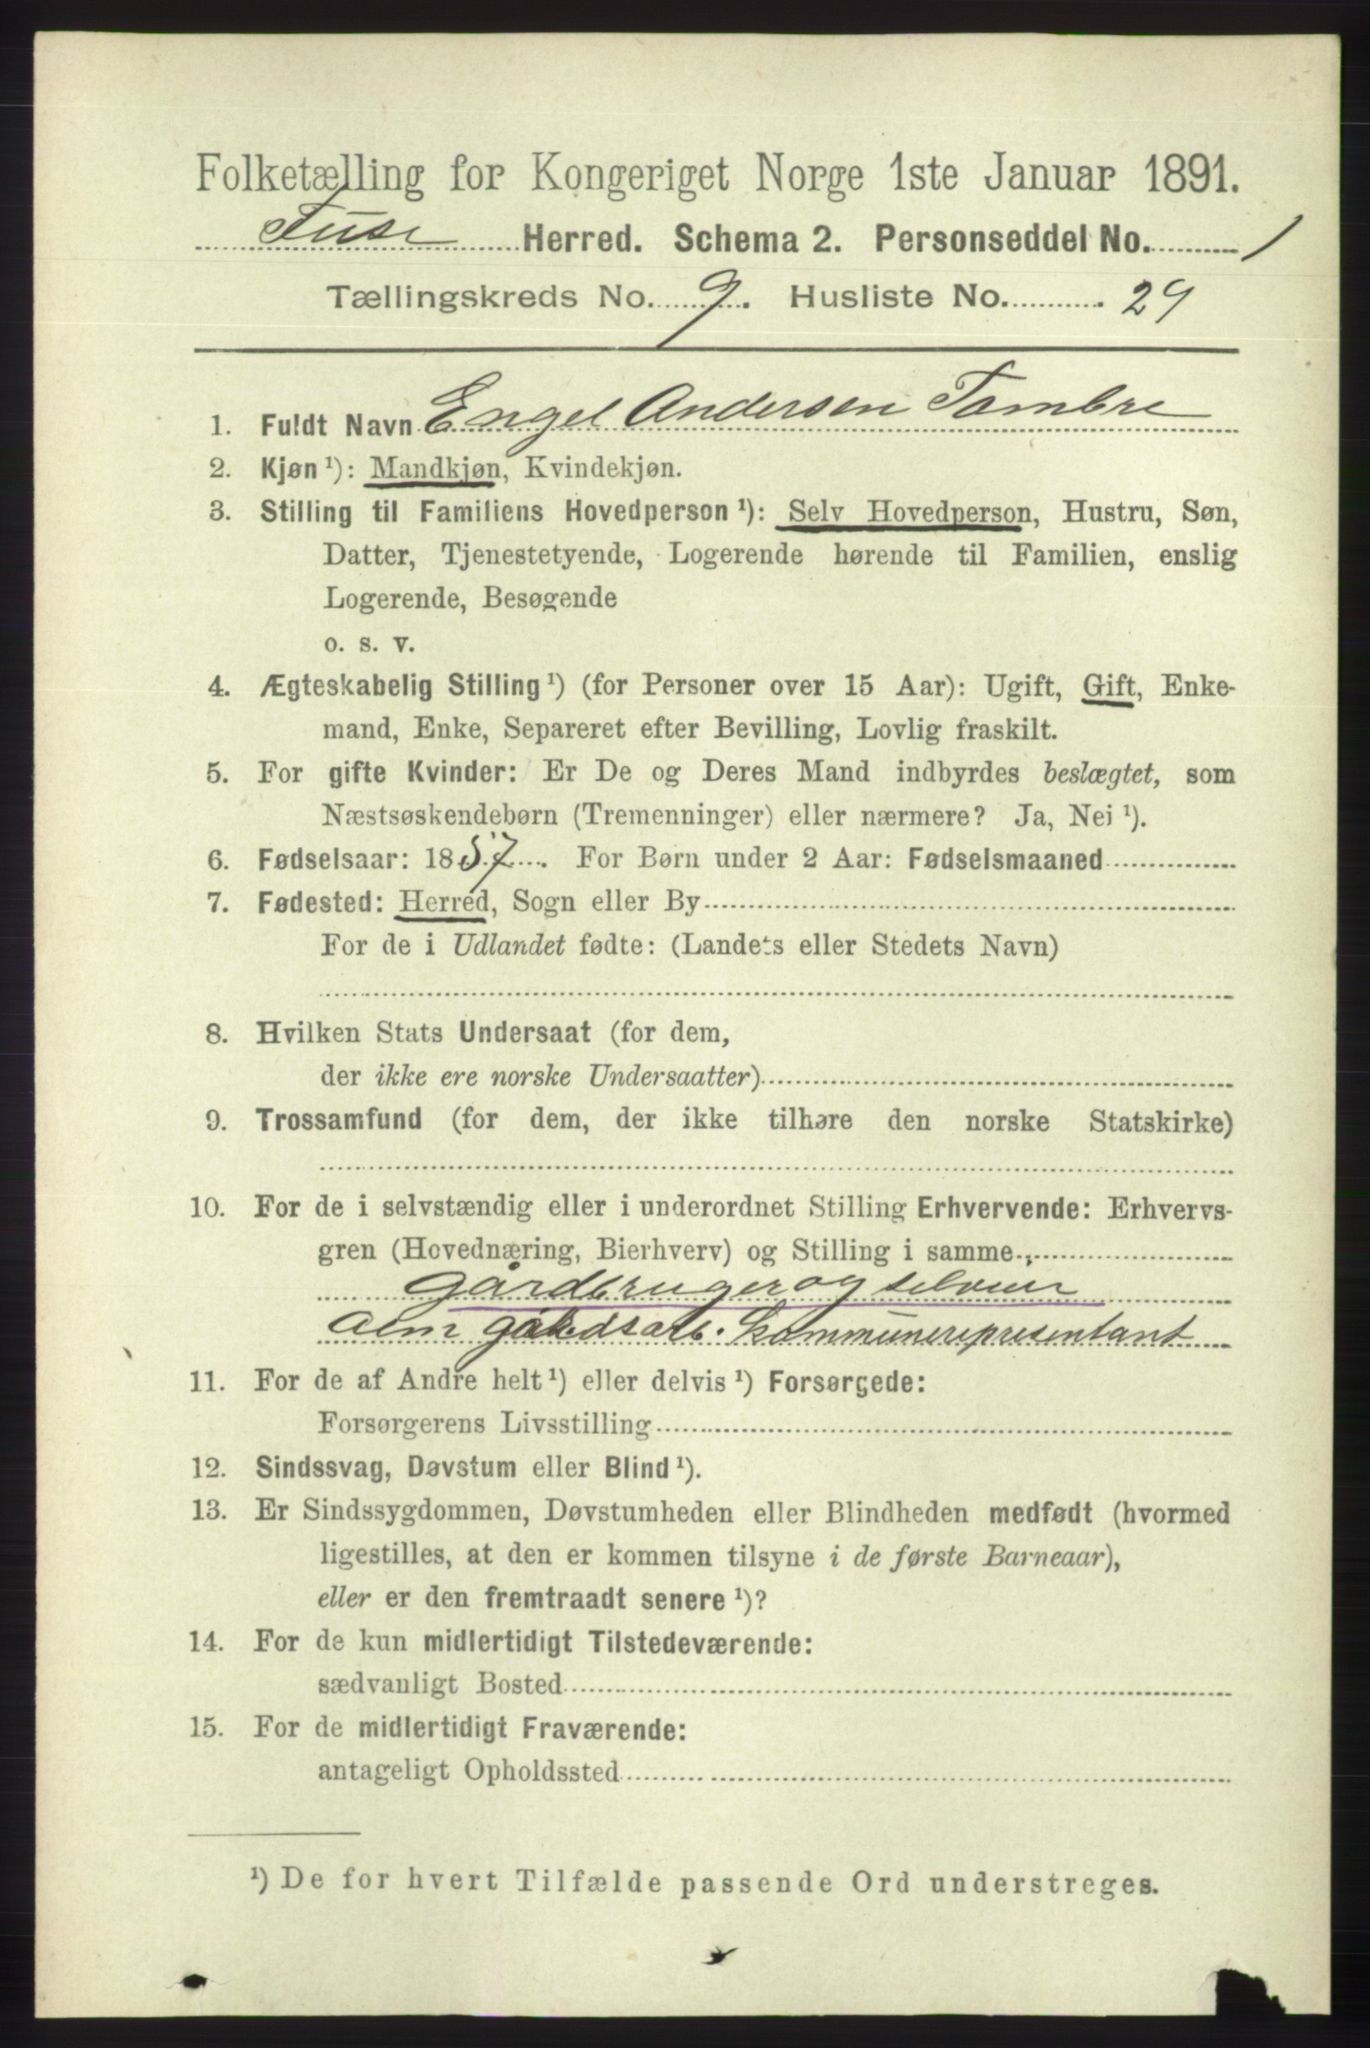 Folketælling for Kongeriget Norge 1ste Januar 1891.
Fuse Herred. Schema 2. Personseddel No. 1
Tællingskreds No. 9. Husliste No. 29
1. Fuldt Navn Engel Andersen Tombre
2. Kjøn ¹): Mandkjøn, Kvindekjøn.
3. Stilling til Familiens Hovedperson ¹): Selv Hovedperson, Hustru, Søn,
Datter, Tjenestetyende, Logerende hørende til Familien, enslig
Logerende, Besøgende
o. s. v.
4. Ægteskabelig Stilling ¹) (for Personer over 15 Aar): Ugift, Gift, Enke-
mand, Enke, Separeret efter Bevilling, Lovlig fraskilt.
5. For gifte Kvinder: Er De og Deres Mand indbyrdes beslægtet, som
Næstsøskendebørn (Tremenninger) eller nærmere? Ja, Nei ¹).
6. Fødselsaar: 1857. For Børn under 2 Aar: Fødselsmaaned
7. Fødested: Herred, Sogn eller By
For de i Udlandet fødte: (Landets eller Stedets Navn)
8. Hvilken Stats Undersaat (for dem,
der ikke ere norske Undersaatter)
9. Trossamfund (for dem, der ikke tilhøre den norske Statskirke)
10. For de i selvstændig eller i underordnet Stilling Erhvervende: Erhvervs-
gren (Hovednæring, Bierhverv) og Stilling i samme
Gårdbruger og selveier
Alm gårdsarb. kommunerepresentant
11. For de af Andre helt ¹) eller delvis ¹) Forsørgede:
Forsørgerens Livsstilling
12. Sindssvag, Døvstum eller Blind ¹).
13. Er Sindssygdommen, Døvstumheden eller Blindheden medfødt (hvormed
ligestilles, at den er kommen tilsyne i de første Barneaar),
eller er den fremtraadt senere ¹)?
14. For de kun midlertidigt Tilstedeværende:
sædvanligt Bosted
15. For de midlertidigt Fraværende:
antageligt Opholdssted
¹) De for hvert Tilfælde passende Ord understreges.